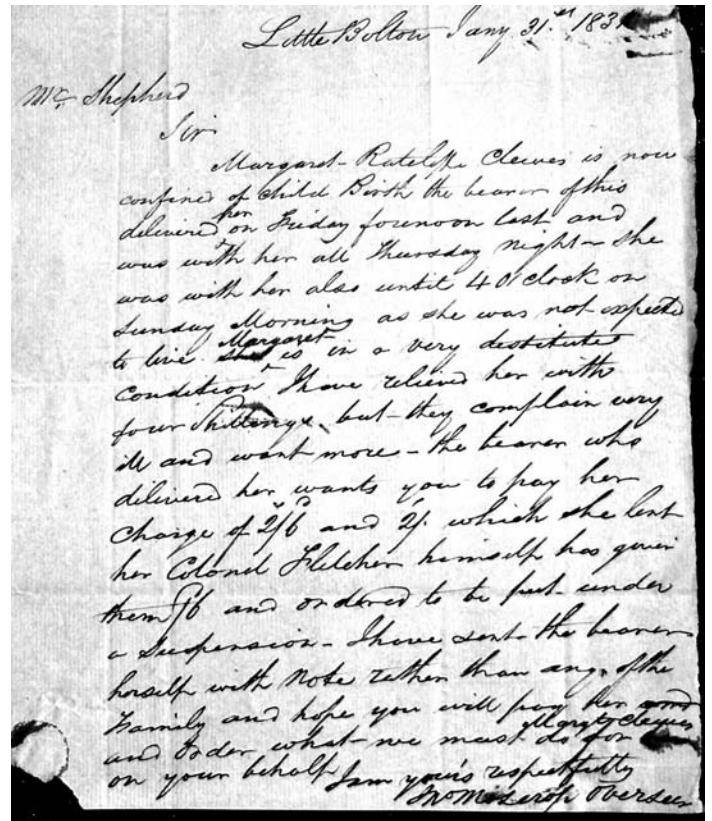 Little Bolton Jany 31.st 183
Mr Shepherd
Sir
Margaret Ratcliffe Cleeves is now
confined of Child Birth the bearer of this
delivered her on Friday forenoon last and
was with her all Thursday night - she
was with her also until 4 O'clock on
Sunday Morning as she was not expected
to live. Margaret is in a very destitute
condition I have relieved her with
four Shillings but they complain very
ill and want more - the bearer who
delivered her wants you to pay her
Charge of 2s/6d and 2/. which she lent
her Colonel Fletcher himself has given
them and ordered to be put under
a Suspension - I have sent the bearer
herself with Note rather than any of the
Family and hope you will pay her and
and Order what we must do for Margt Cleeves
on your behalf I am your's respectfully
Jno Overseer